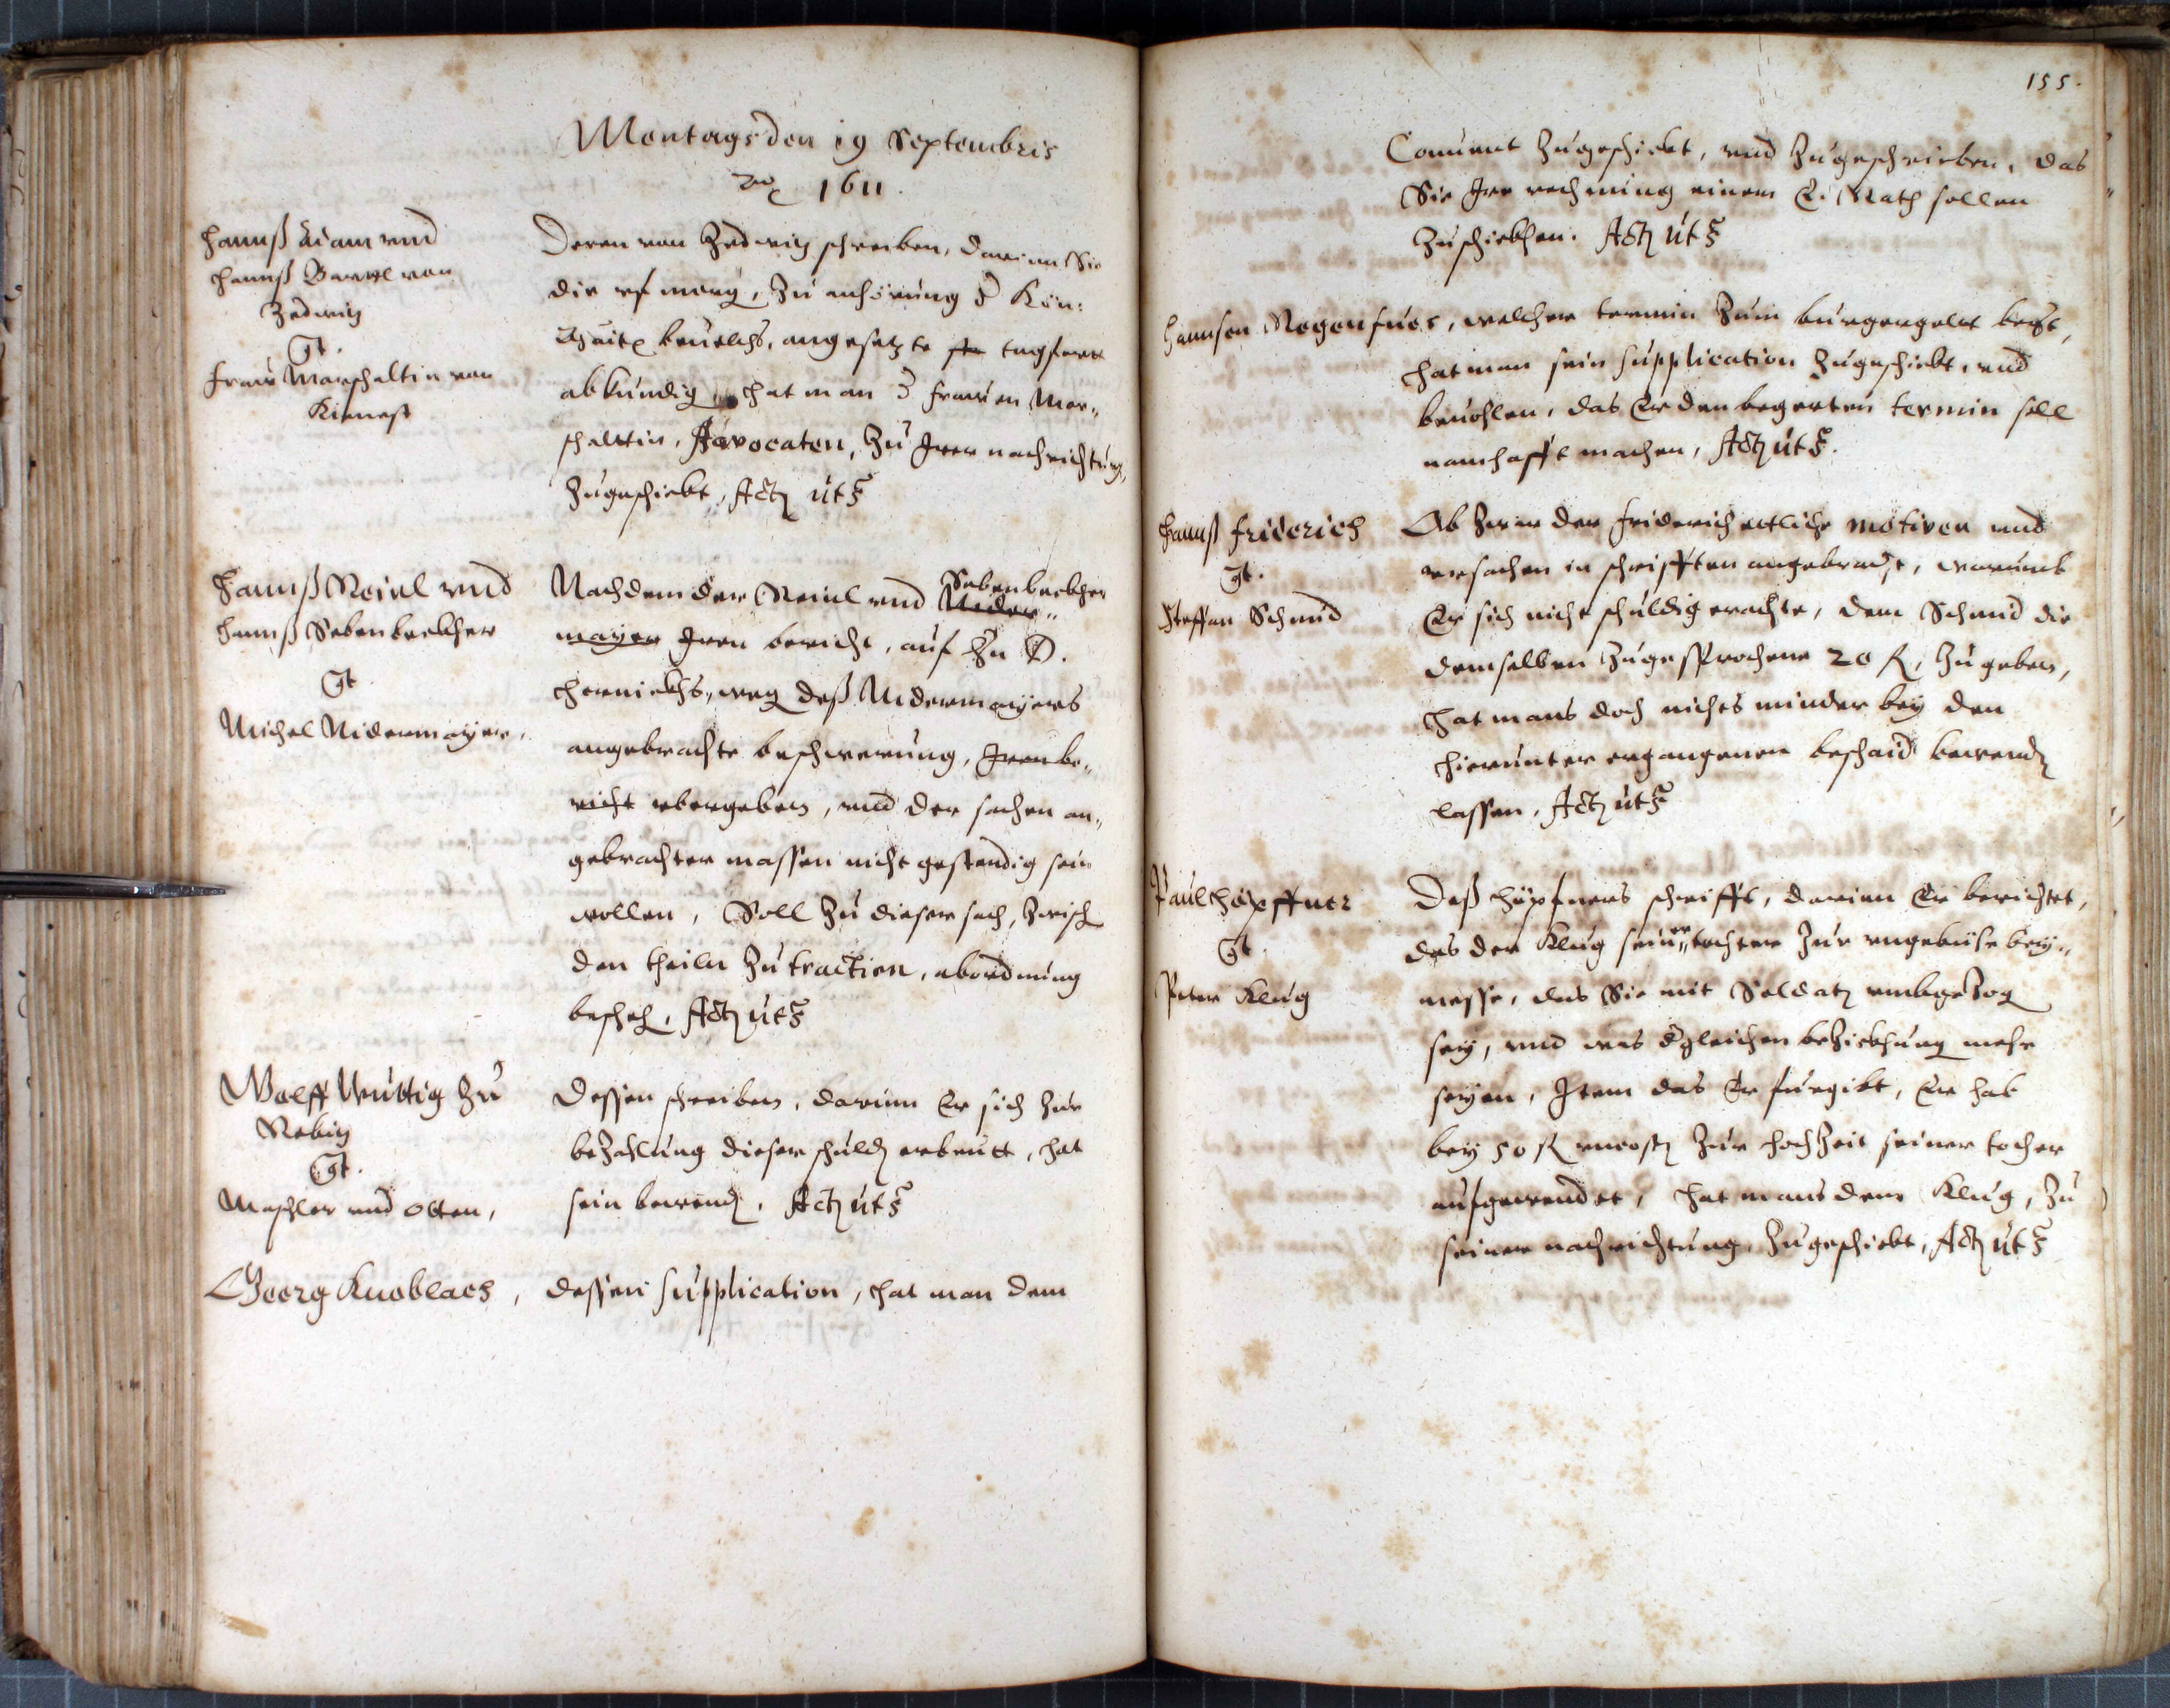 Montags den 19 Septembris
1611.
Hannß Adam vnd
Hannß Barttl von
Zedwitz
Gt.
Fraw Marschaltin von
Kienest
Deren von Zedwitz schreiben, darinn Sie
die vf morg, zu anhörung d Kön:
Mait. beuelchs, angesetzte tagfart
abkündig, hat man d frawen Mar-
schaltin, Advocaten, zu Jrer nachrichtung
zugeschickt, Act ut s
Hannß Reinl vnd
Hannß Sebenbeckher
Gt
Michel Nidermayer,
Nachdem der Reinl vnd Nider- Sebenbeckher
mayer Jren bericht, auf Zu D.
Hernickhs, weg deß Nidermayers
angebrachte beschwerung, Jren be-
richt vbergeben, vnd der sachen an-
gebrachter massen nicht gestendig sein
wollen, Soll zu dieser sach, zwisch
den theiln zu tractien, abordnung
bescheh, Act ut s
Wolff Wuttig zu
Rebitz
Gt.
Maschler vnd Otten,
Dessen schreiben, darinn Er sich zur
bezahlung dieser schuld erbeutt, hat
sein bewend. Act ut s
Georg Knoblach,
dessen supplication, hat man dem
155.
Conuent zugeschickt, vnd zugeschrieben, das
Sie Jre rechnung einem E. Rath sollen
zuschickhen. Act ut s
Hannsen Rogenfues, welcher termin zum burgergelt begt,
hat man sein supplication zugeschickt, vnd
beuohlen, das Er den begerten termin soll
namhafft machen, Act ut s.
Hannß Friderich
gt.
Steffan Schmid
Ob zwar der Friderich ettliche motiven vnd
vrsachen in schrifften angebracht, warumb
Er sich nicht schuldig erachte, dem Schmid die
demselben zugesprochene 20 f, zu geben,
hat mans doch nichts minder bey den
hierunter ergangenen beschaid bewend
lassen, Act ut s
Paul Höpffner
Gt.
Peter Klug
Deß Höpfners schrifft, darinn Er berichtet,
das der Klug seiner tochter zur vngebüer bey-
messe, das Sie mit Soldat vmbgezog
sey, vnd was dgleichen bezickhung mehr
seyen, Jtem das Er furgibt, Er hab
bey 50 f vncost zur hochzeit seiner tocher
aufgewendet, hat mans dem Klug, zu
seiner nachrichtung, zugeschickt, Act ut s